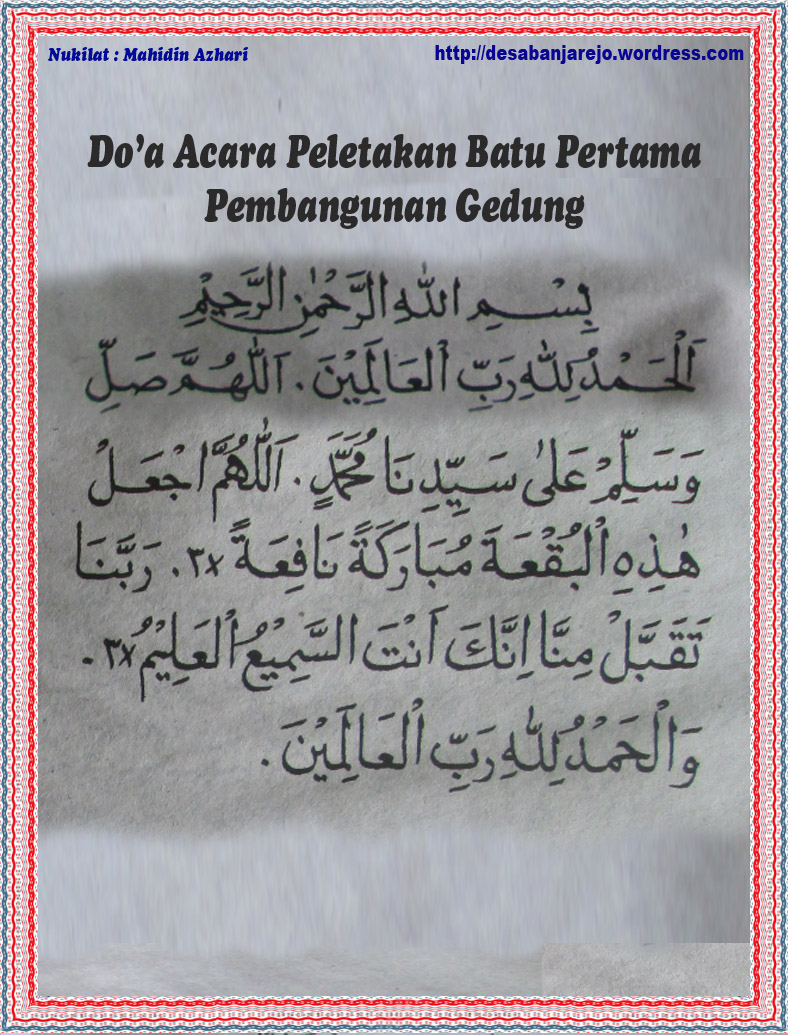 Nukilat : Mahidin Azhari
http://desabanjarejo.wordpress.com
Do'a Acara Peletakan Batu Pertama
Pembangunan Gedung
بِسْــمِ اللهِ الرَّحْمٰنِ الرَّحِيْمِ
اَلْحَـمْدُ لِلّٰهِ رَبِّ الْعَالَمِيْنَ . اَللّٰهُـمَّ صَـلِّ
وَسَلِّمْ عَلىٰ سَـيِّدِنَا مُحَمَّدٍ . اَللّٰهُمَّ اجْعَـلْ
هٰـذِهِ الْبُقْعَـةَ مُبَارَكَةً نَافِعَـةً ٣x . رَبَّنَا
تَقَبَّلْ مِنَّا اِنَّكَ اَنْتَ السَّمِيْعُ الْعَلِيْمُ ٣x .
وَالْحَمْدُ لِلّٰهِ رَبِّ الْعَالَمِيْنَ .